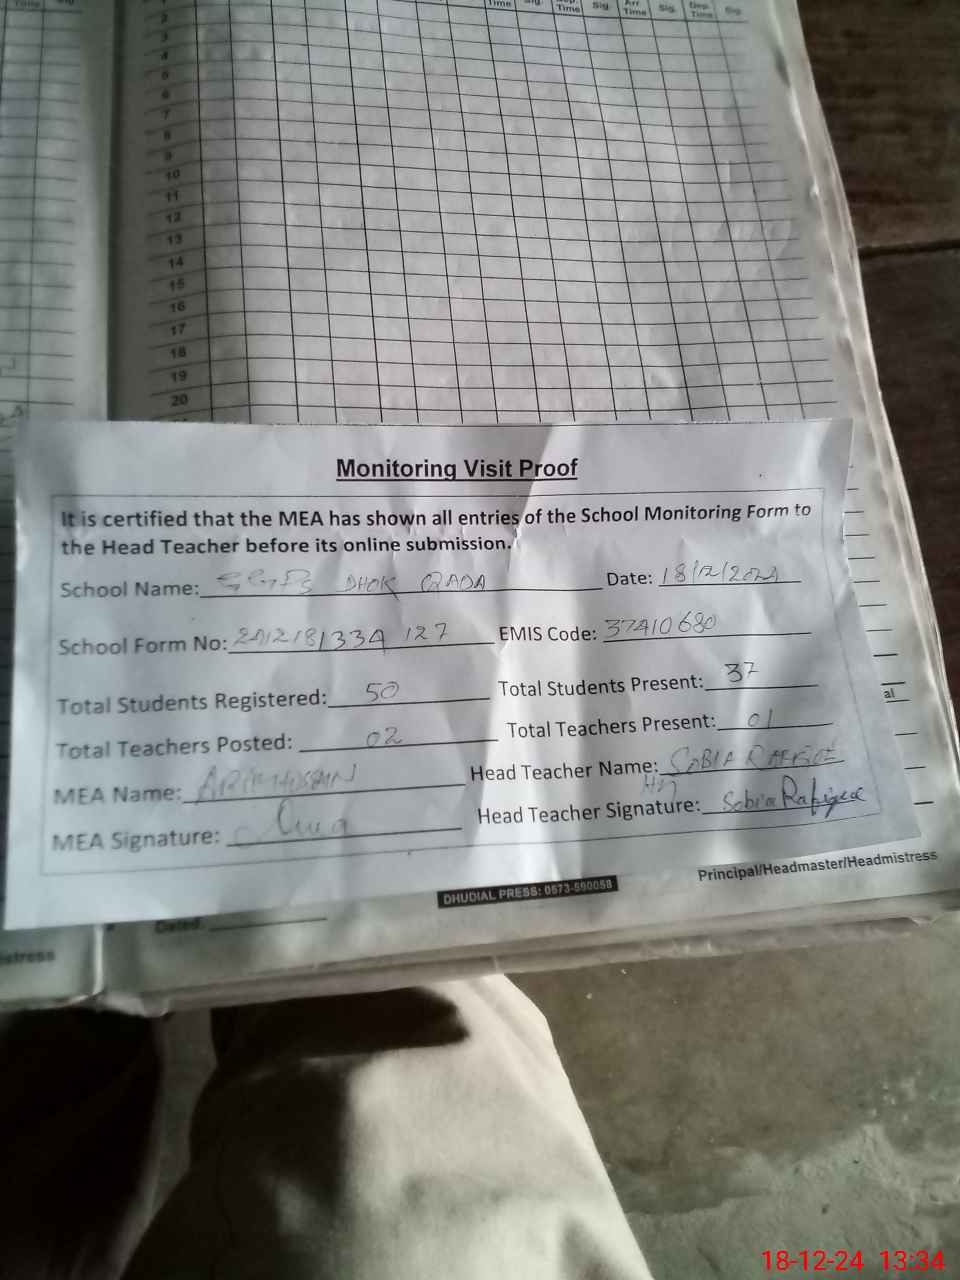 Time Sig. Time Sig. Dep. Time Sig. Arr. Time Sig. Dep. Time Sig.
1
2
3
4
5
6
7
8
9
10
11
12
13
14
15
16
17
18
19
20
Monitoring Visit Proof
It is certified that the MEA has shown all entries of the School Monitoring Form to
the Head Teacher before its online submission.
School Name: DHOK Date: 18/12/2024
School Form No: EMIS Code: 37410680
Total Students Registered: 50 Total Students Present: 37
Total Teachers Posted: 02 Total Teachers Present: 01
MEA Name: Head Teacher Name: SOBIA RAFIQUE
MEA Signature: Head Teacher Signature: Sobia Rafique
al
Principal/Headmaster/Headmistress
DHUDIAL PRESS: 0573-590058
Dated:
istress
18-12-24 13:34